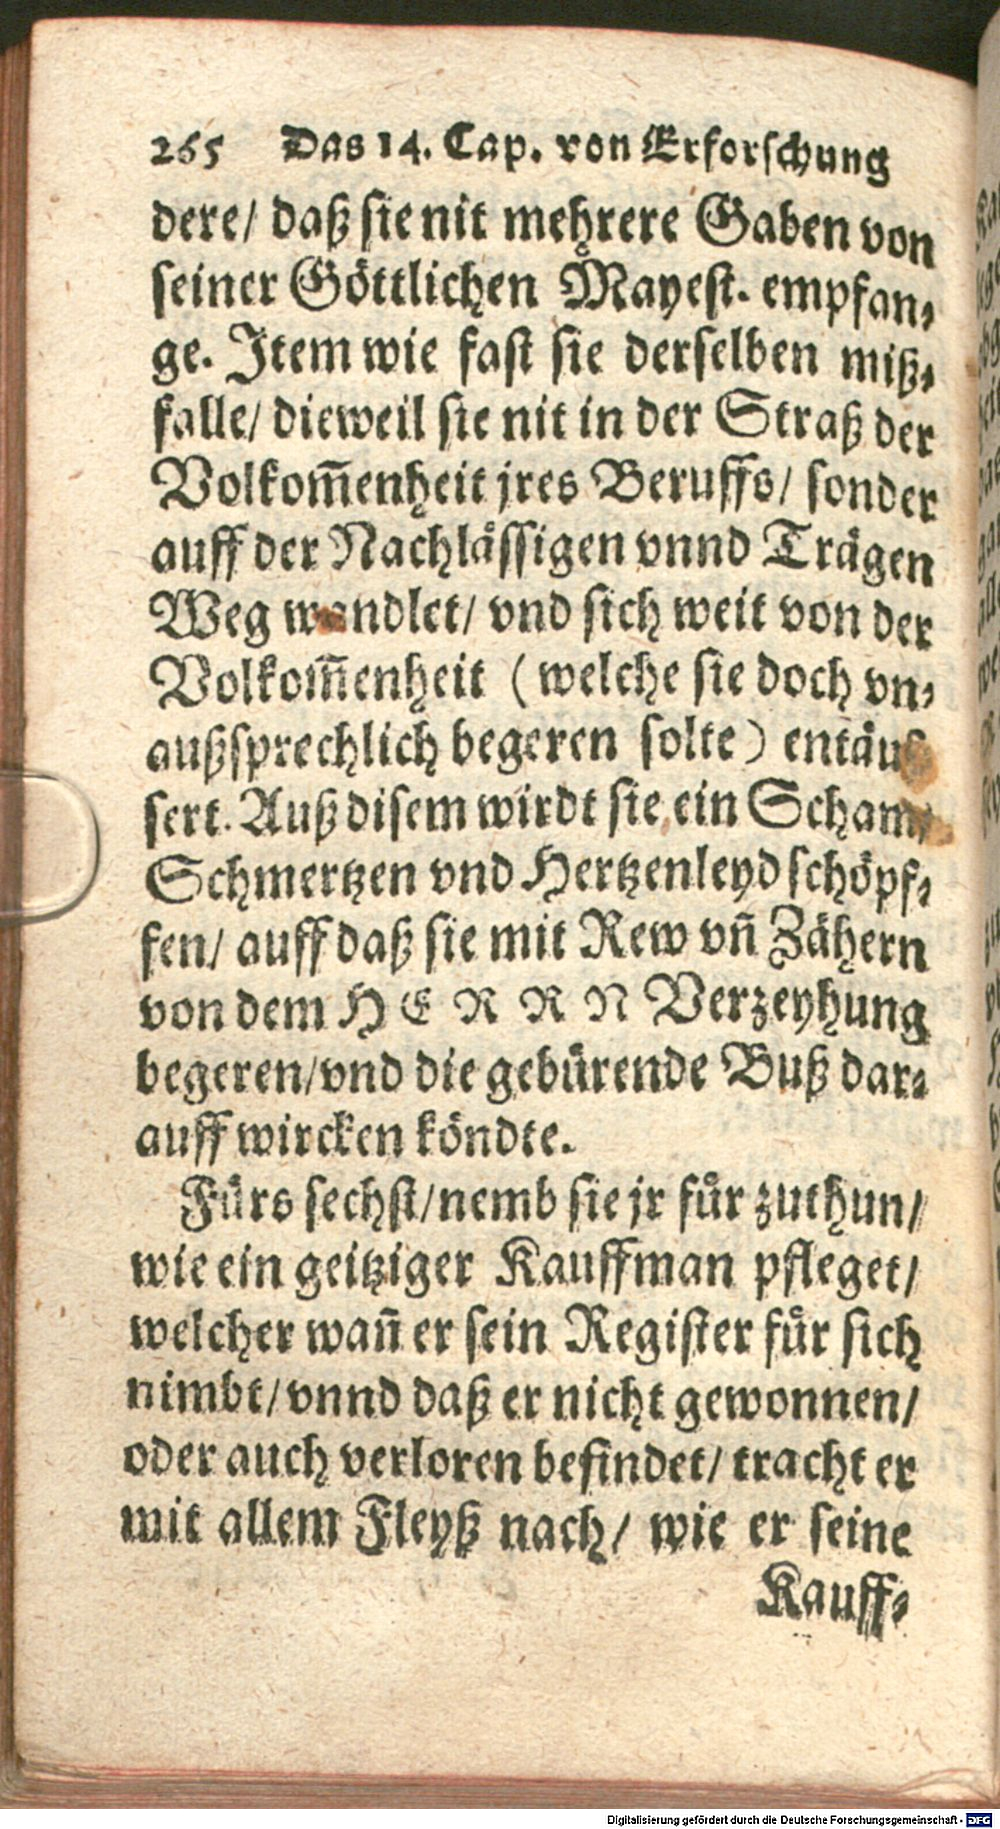 265 Das 14. Cap. von Erforschung
dere/ daß sie nit mehrere Gaben von
seiner Göttlichen Mayest. empfan⸗
ge. Item wie fast sie derselben miß⸗
falle/ dieweil sie nit in der Straß der
Volkom̅enheit jres Beruffs/ sonder
auff der Nachlässigen vnnd Trägen
Weg wandlet/ vnd sich weit von der
Volkom̅enheit (welche sie doch vn⸗
außsprechlich begeren solte) entäus
sert. Auß disem wirdt sie ein Scham/
Schmertzen vnd Hertzenleyd schöpf⸗
fen/ auff daß sie mit Rew vn̅ Zähern
von dem HERRN Verzeyhung
begeren/ vnd die gebürende Buß dar⸗
auff wircken köndte.
Fürs sechst/ nemb sie jr für zuthun/
wie ein geitziger Kauffman pfleget/
welcher wan̅ er sein Register für sich
nimbt/ vnnd daß er nicht gewonnen/
oder auch verloren befindet/ tracht er
mit allem Fleyß nach/ wie er seine
Kauff⸗
Digitalisierung gefördert durch die Deutsche Forschungsgemeinschaft - DFG